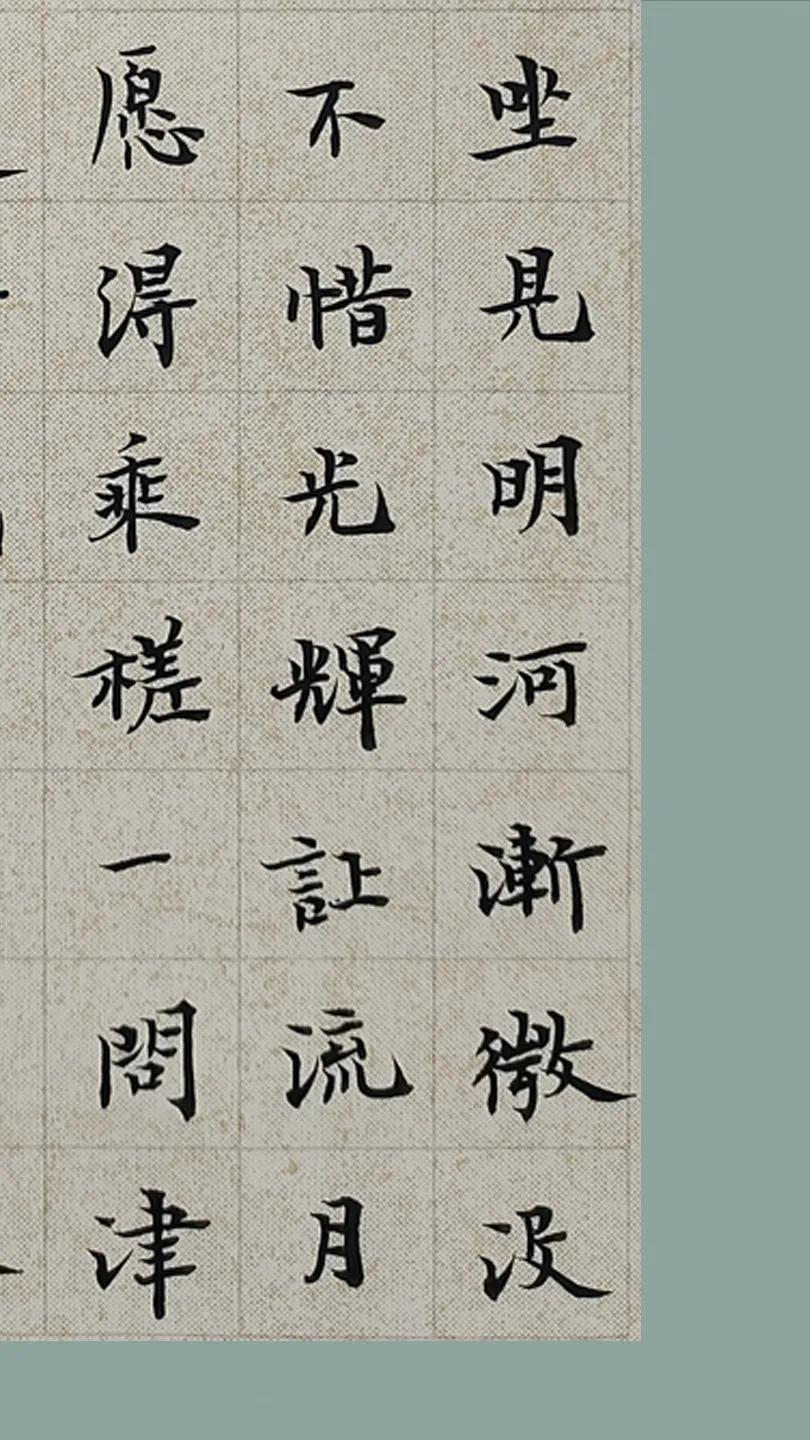 坐見明河漸微没
不惜光輝让流月
愿得乘槎一問津